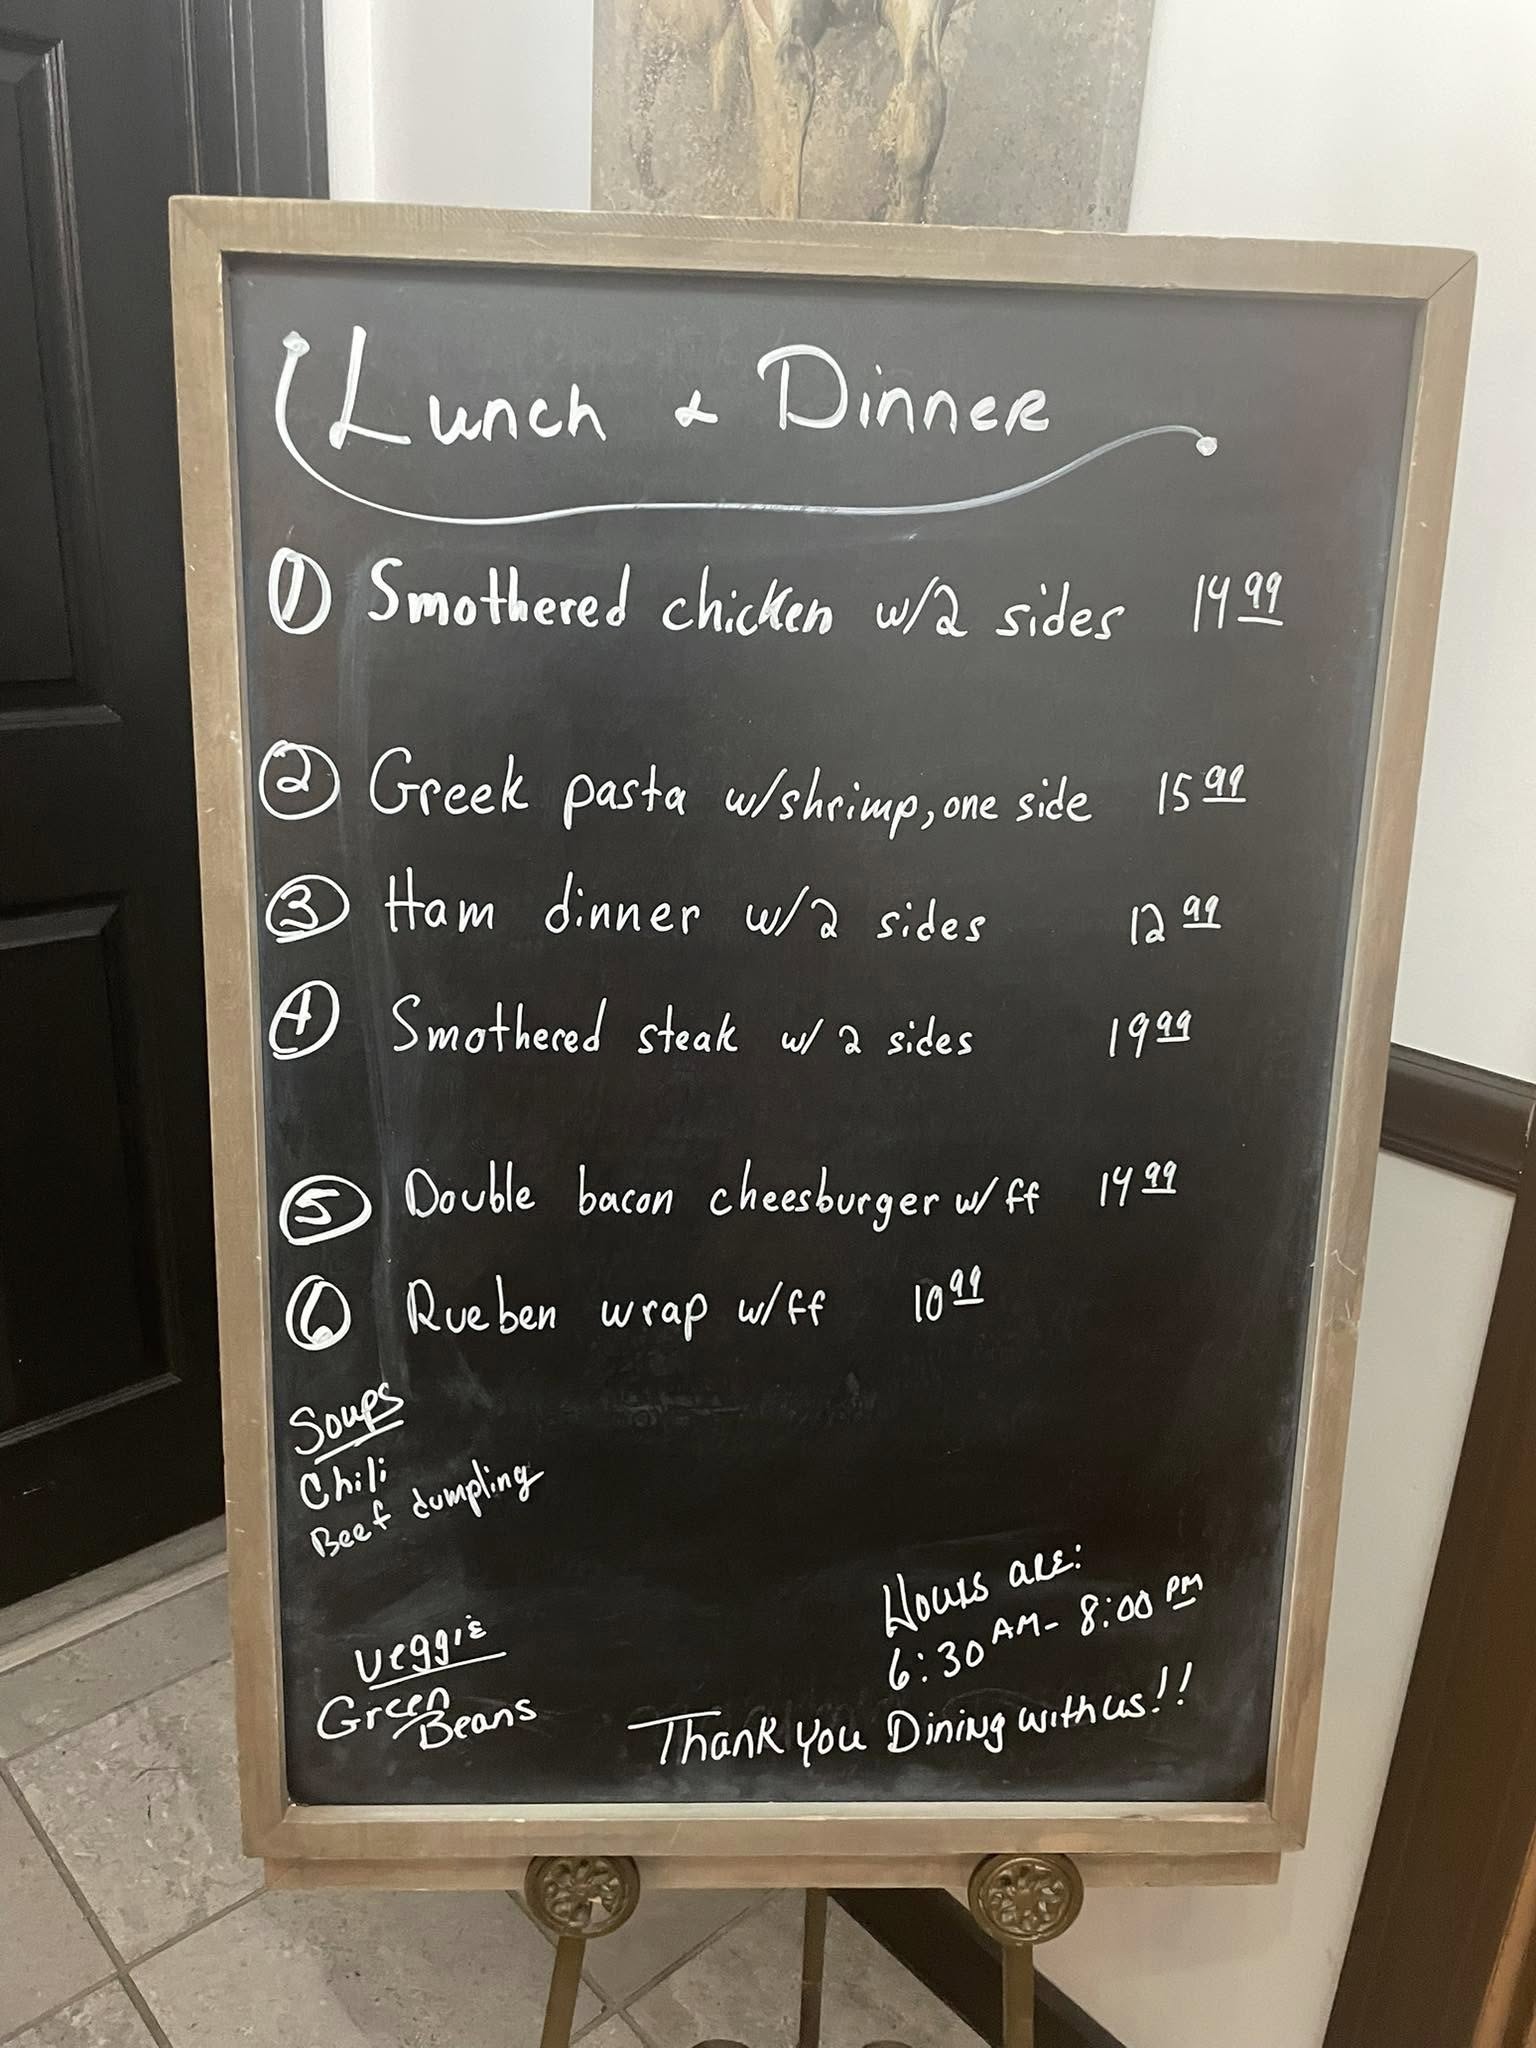 Lunch & Dinner
1 Smothered chicken w/2 sides 14 99
2 Greek pasta w/shrimp, one side 15 99
3 Ham dinner w/2 sides 12 99
4 Smothered steak w/ 2 sides 19 99
5 Double bacon cheesburger w/ ff 14 99
6 Rueben wrap w/ff 10 99
Soups
Chili
Beef dumpling
Veggie
Green
Beans
Hours are:
6:30 AM - 8:00 PM
Thank you Dining with us!!